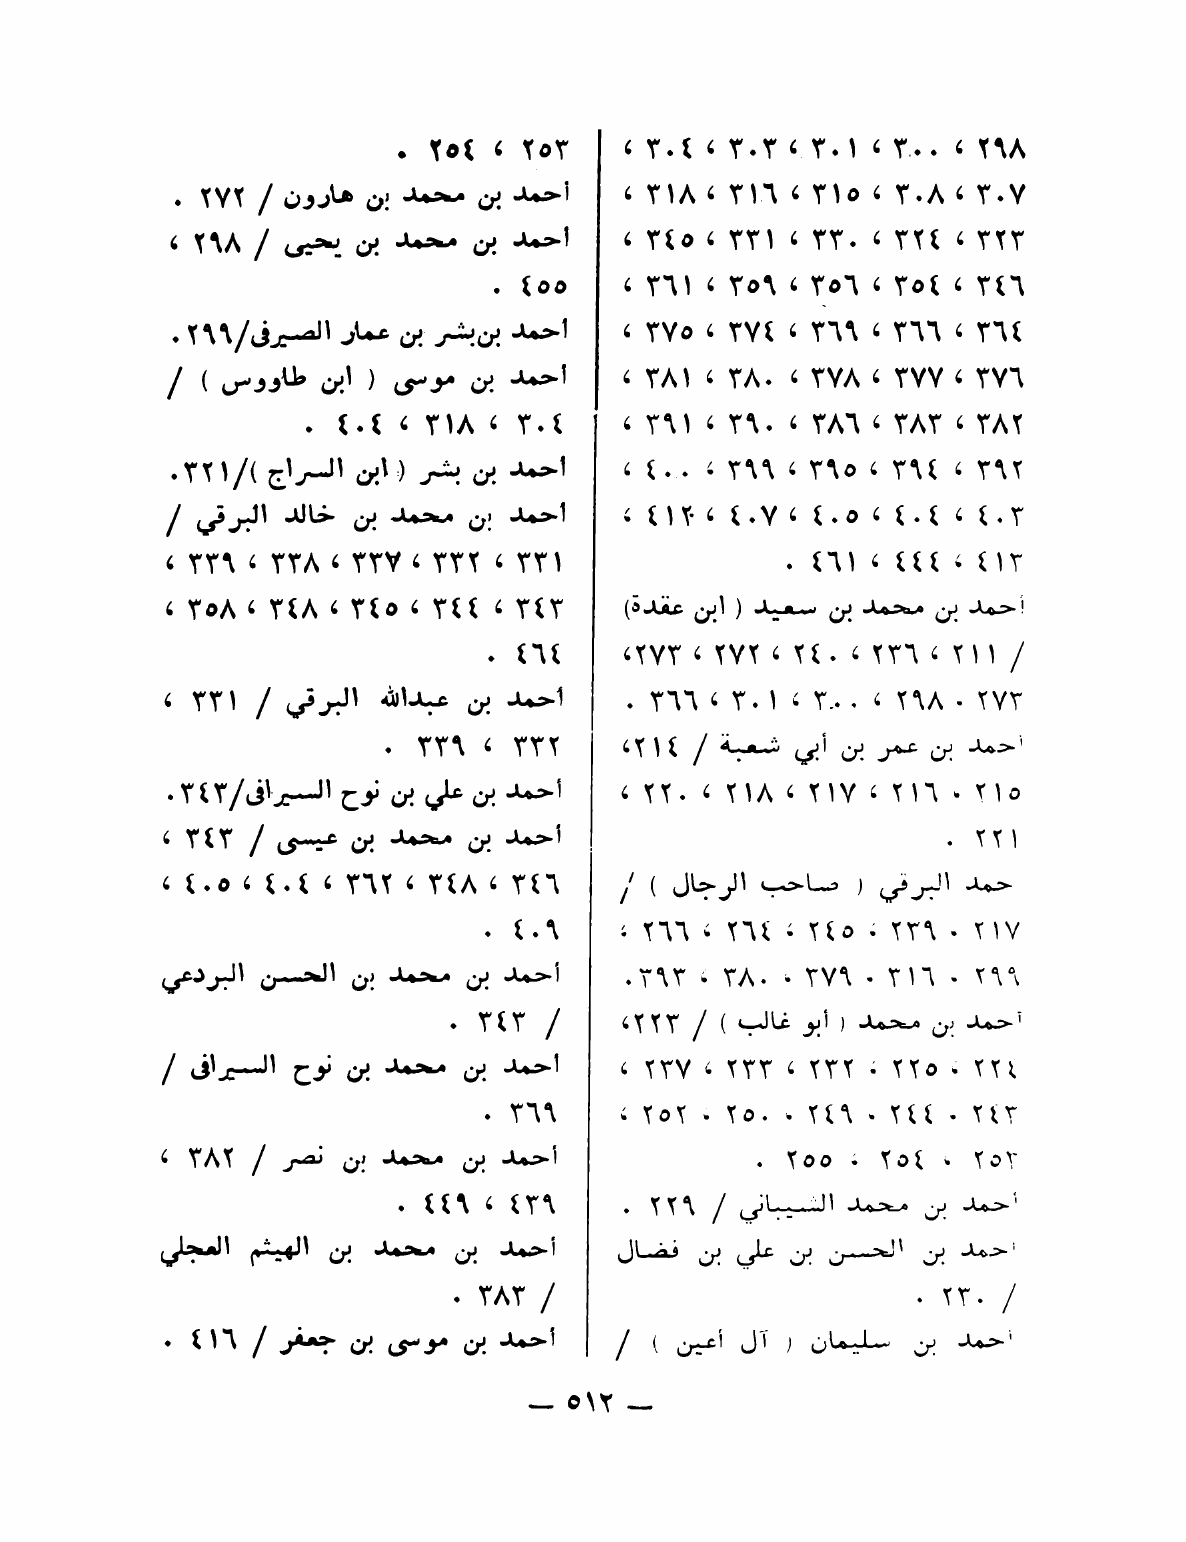 ٢٩٨ ، ٣٠٠ ، ٣٠١ ، ٣٠٣ ، ٣٠٤ ،
٣٠٧ ، ٣٠٨ ، ٣١٥ ، ٣١٦ ، ٣١٨ ،
٣٢٣ ، ٣٢٤ ، ٣٣٠ ، ٣٣١ ، ٣٤٥ ،
٣٤٦ ، ٣٥٤ ، ٣٥٦ ، ٣٥٩ ، ٣٦١ ،
٣٦٤ ، ٣٦٦ ، ٣٦٩ ، ٣٧٤ ، ٣٧٥ ،
٣٧٦ ، ٣٧٧ ، ٣٧٨ ، ٣٨٠ ، ٣٨١ ،
٣٨٢ ، ٣٨٣ ، ٣٨٦ ، ٣٩٠ ، ٣٩١ ،
٣٩٢ ، ٣٩٤ ، ٣٩٥ ، ٣٩٩ ، ٤٠٠ ،
٤٠٣ ، ٤٠٤ ، ٤٠٥ ، ٤٠٧ ، ٤١٢ ،
٤١٣ ، ٤٤٤ ، ٤٦١ .
أحمد بن محمد بن سعيد ( ابن عقدة)
/ ٢١١ ، ٢٣٦ ، ٢٤٠ ، ٢٧٢ ، ٢٧٣،
٢٧٣ . ٢٩٨ ، ٣٠٠ ، ٣٠١ ، ٣٦٦ .
أحمد بن عمر بن أبي شعبة / ٢١٤،
٢١٥ . ٢١٦ ، ٢١٧ ، ٢١٨ ، ٢٢٠ ،
٢٢١ .
حمد البرقي ( صاحب الرجال ) /
٢١٧ . ٢٣٩ . ٢٤٥ ، ٢٦٤ ، ٢٦٦ ،
٢٩٩ . ٣١٦ . ٣٧٩ . ٣٨٠ ، ٣٩٣.
أحمد بن محمد ( أبو غالب ) / ٢٢٣،
٢٢٤ . ٢٢٥ . ٢٣٢ ، ٢٣٣ ، ٢٣٧ ،
٢٤٣ . ٢٤٤ . ٢٤٩ . ٢٥٠ . ٢٥٢ ،
٢٥٣ . ٢٥٤ . ٢٥٥ .
أحمد بن محمد الشيباني / ٢٢٩ .
احمد بن الحسن بن علي بن فضال
/ ٢٣٠ .
احمد بن سليمان ( آل أعين ) /
٢٥٣ ، ٢٥٤ .
أحمد بن محمد بن هارون / ٢٧٢ .
أحمد بن محمد بن يحيى / ٢٩٨ ،
٤٥٥ .
أحمد بن بشر بن عمار الصيرفى/٢٩٩.
أحمد بن موسى ( ابن طاووس ) /
٣٠٤ ، ٣١٨ ، ٤٠٤ .
أحمد بن بشر ( ابن السراج )/٣٢١.
أحمد بن محمد بن خالد البرقي /
٣٣١ ، ٣٣٢ ، ٣٣٧ ، ٣٣٨ ، ٣٣٩ ،
٣٤٣ ، ٣٤٤ ، ٣٤٥ ، ٣٤٨ ، ٣٥٨ ،
٤٦٤ .
أحمد بن عبدالله البرقي / ٣٣١ ،
٣٣٢ ، ٣٣٩ .
أحمد بن علي بن نوح السيرافى/٣٤٣.
أحمد بن محمد بن عيسى / ٣٤٣ ،
٣٤٦ ، ٣٤٨ ، ٣٦٢ ، ٤٠٤ ، ٤٠٥ ،
٤٠٩ .
أحمد بن محمد بن الحسن البردعي
/ ٣٤٣ .
أحمد بن محمد بن نوح السيرافى /
٣٦٩ .
أحمد بن محمد بن نصر / ٣٨٢ ،
٤٣٩ ، ٤٤٩ .
أحمد بن محمد بن الهيثم العجلي
/ ٣٨٣ .
أحمد بن موسى بن جعفر / ٤١٦ .
— ٥١٢ —